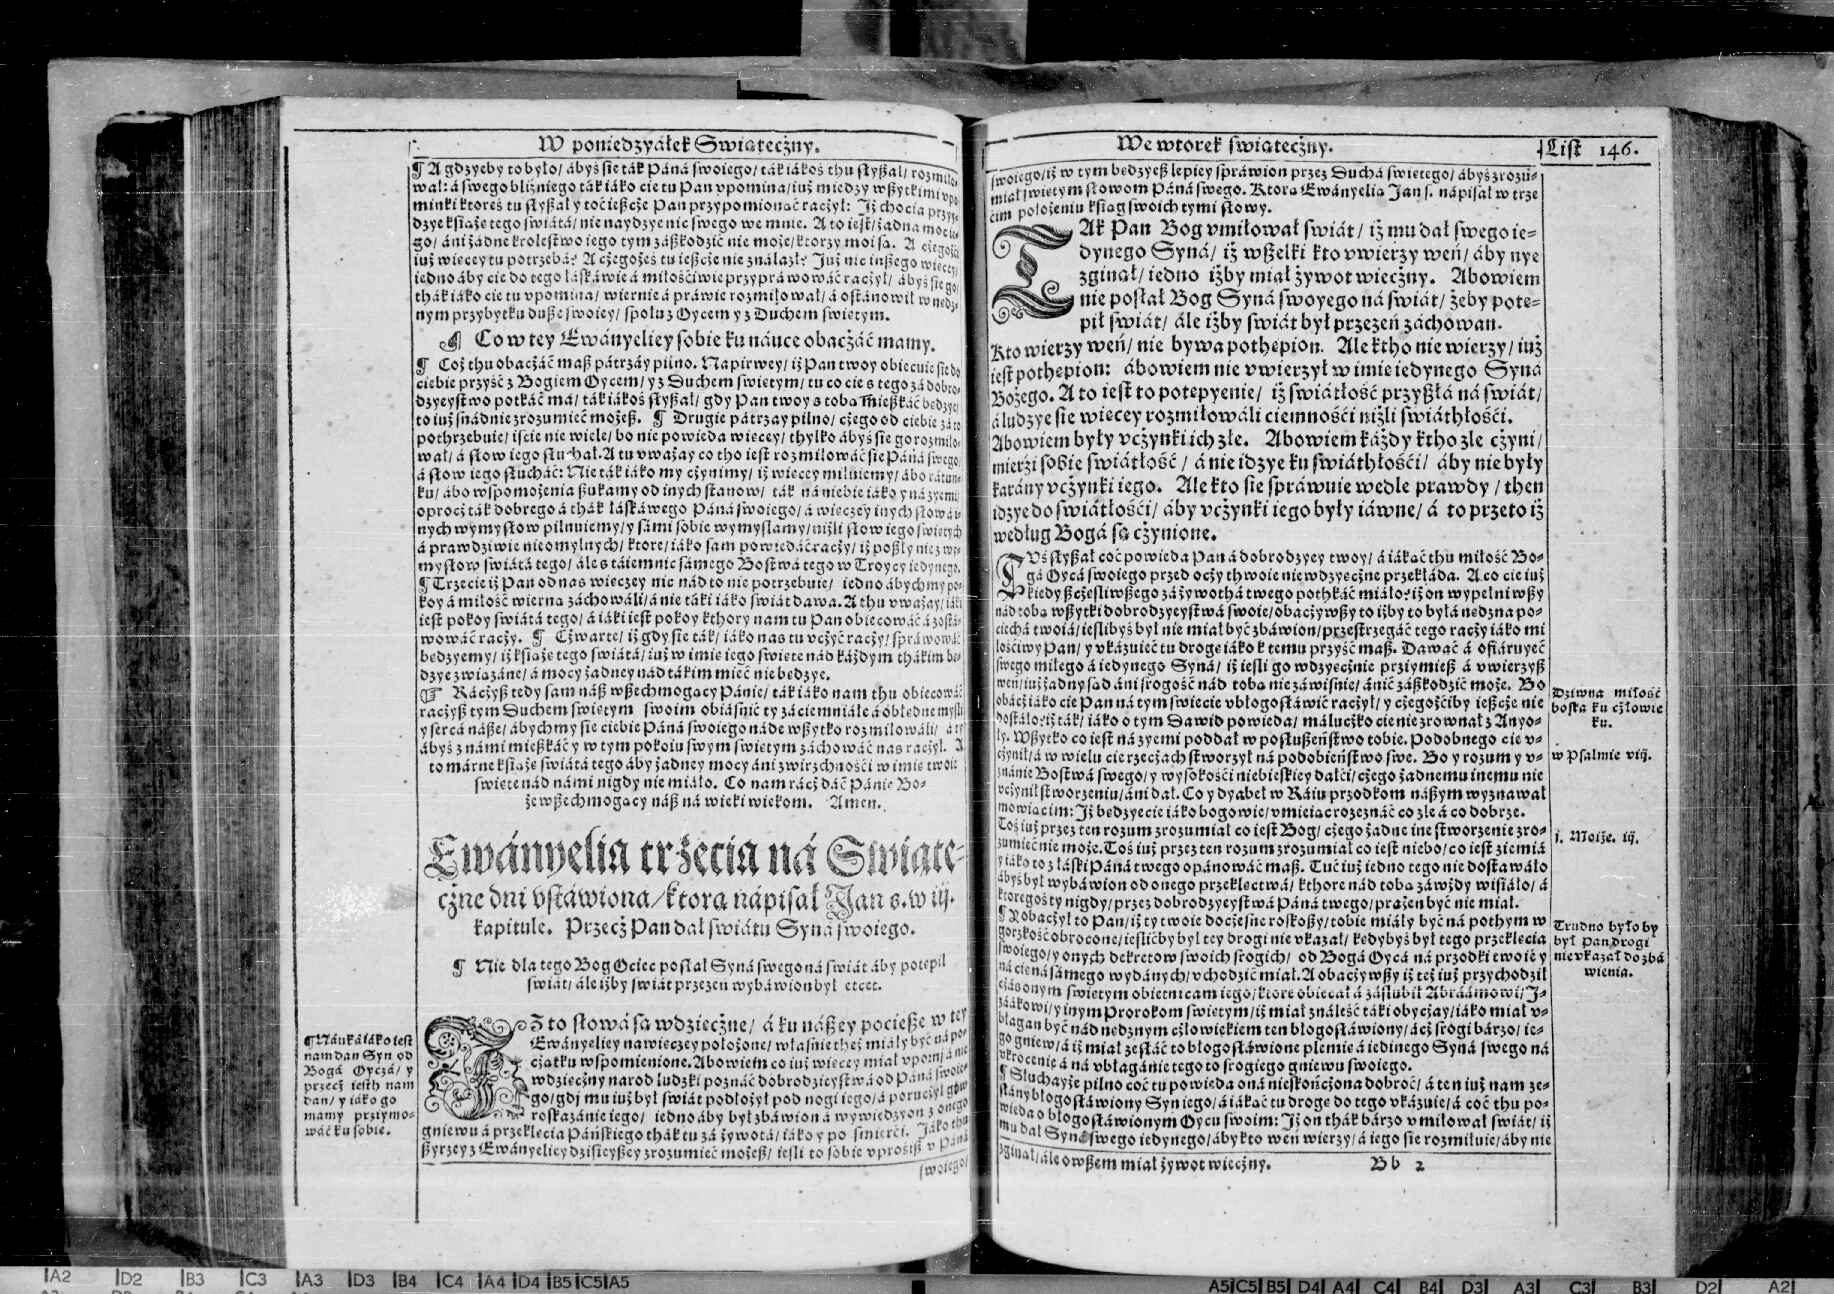 W poniedzyáłek Swiątecżny.
¶ A gdzyeby to było/ ábyś sie ták Páná swoiego/ ták iákoś thu słyßał/ rozmiło-
wał: á swego bliźniego ták iáko cie tu Pan vpomina/ iuż miedzy wßytkimi vpo
minki ktoreś tu słyßał y toć ießcże Pan przypomionąć racżył: Iż chocia przyy-
dzye książe tego świátá/ nie naydzye nic swego we mnie. A to iest/ żadna moc ie-
go/ áni żadne krolestwo iego tym záßkodzić nie może/ ktorzy moi są. A cżegożci
iuż wiecey tu potrzebá? A cżegożeś tu ießcże nie ználazł? Już nic inßego wiecey/
iedno áby cie do tego łáskáwie á miłościwie przypráwowáć racżył/ ábyś sie go/
thák iáko cie tu vpomina/ wiernie á práwie rozmiłował/ á ostánowił w nędz-
nym przybytku duße swoiey/ społu z Oycem y z Duchem swiętym.
¶ Co w tey Ewányeliey sobie ku náuce obacżáć mamy.
¶ Coż thu obacżáć maß pátrzay pilno. Napirwey/ iż Pan twoy obiecuie sie do
ciebie przyść z Bogiem Oycem/ y z Duchem swiętym/ tu co cie s tego zá dobro-
dzyeystwo potkáć ma/ ták iákoś słyßał/ gdy Pan twoy s tobą mießkáć będzye/
to iuż snádnie zrozumieć możeß. ¶ Drugie pátrzay pilno/ cżego od ciebie zá to
pothrzebuie/ iście nie wiele/ bo nie powieda wiecey/ thylko ábyś sie go rozmiło-
wał/ á słow iego słuchał. A tu vważay co tho iest rozmiłowáć sie Páná swego/
á słow iego słucháć: Nie ták iáko my cżynimy/ iż wiecey miłuiemy/ ábo rátun-
ku/ ábo wspomożenia ßukamy od inych stanow/ ták ná niebie iáko y ná zyemi/
oprocż ták dobrego á thák łáskáwego Páná swoiego/ á wiecżey inych słow á i-
nych wymysłow pilnuiemy/ y sámi sobie wymyslamy/ niżli słow iego swiętych
á prawdziwie nieomylnych/ ktore/ iáko sam powiedáć racży/ iż poßły nie z wy-
mysłow swiátá tego/ ále s táiemnic sámego Bostwá tego w Troycy iedynego.
¶ Trzecie iż Pan od nas wieczey nic nád to nie potrzebuie/ iedno ábychmy po-
koy á miłość wierną záchowáli/ á nie táki iáko świát dawa. A thu vważay/ iáki
iest pokoy świátá tego/ á iáki iest pokoy kthory nam tu Pan obiecowáć á zostá-
wowáć racży. ¶ Cżwarte/ iż gdy sie ták/ iáko nas tu vcżyć racży/ spráwowáć
będzyemy/ iż książe tego swiátá/ iuż w imię iego swięte nád káżdym thákim bę-
dzye związáne/ á mocy żadney nád tákim mieć nie będzye.
¶ Rácżyß tedy sam náß wßechmogący Pánie/ ták iáko nam thu obiecowáć
racżyß tym Duchem swiętym swoim obiáśnić ty záciemniáłe á obłędne mysli
y sercá náße/ ábychmy sie ciebie Páná swoiego náde wßytko rozmiłowáli/ á ty
ábyś z námi mießkáć y w tym pokoiu swym swiętym záchowáć nas racżył. A
to márne książe swiátá tego áby żadney mocy áni zwirzchnosći w imię twoie
swięte nád námi nigdy nie miáło. Co nam rácż dáć Pánie Bo-
że wßechmogący náß ná wieki wiekom. Amen.
Ewányelia trzecia ná Swiąte-
cżne dni vstáwiona/ ktorą nápisał Jan s. w iij.
kápitule. Przecż Pan dał swiátu Syná swoiego.
¶ Nie dla tego Bog Ociec posłał Syná swego ná świát áby potępił
świát/ ále iżby świát przezeń wybáwion był etcet.
AZ to słowá są wdziecżne/ á ku náßey pocieße w tey
Ewányeliey nawieczey położone/ własnie też miáły być ná po-
cżątku wspomienione. Abowiem co iuż wiecey miał vpomi á nie
wdziecżny narod ludzki poznáć dobrodzieystwá od Páná swoie-
go/ gdj mu iuż był świát podłożył pod nogi iego/ á porucżył gi w
roskazánie iego/ iedno áby był zbáwion á wywiedzyon z onego
gniewu á przeklęcia Páńskiego thák tu zá żywotá/ iáko y po śmierci. Jáko thu
ßyrzey z Ewányeliey dzisieyßey zrozumieć możeß/ iesli to sobie vprosiß v Páná
swoiego/
¶ Náuká iáko iest
nam dan Syn od
Bogá Oyczá/ y
przecż iesth nam
dan/ y iáko go
mamy przymo-
wáć ku sobie.
We wtorek swiątecżny.
List 146.
swoiego/ iż w tym będzyeß lepiey spráwion przez Duchá swiętego/ ábyś zrozu-
miał swiętym słowom Páná swego. Ktorą Ewányelią Jan s. nápisał w trze
cim położeniu ksiąg swoich tymi słowy.
TAk Pan Bog vmiłował swiát/ iż mu dał swego ie-
dynego Syná/ iż wßelki kto vwierzy weń/ áby nye
zginął/ iedno iżby miał żywot wiecżny. Abowiem
nie posłał Bog Syná swoyego ná swiát/ żeby potę-
pił swiát/ ále iżby swiát był przezeń záchowan.
Kto wierzy weń/ nie bywa pothępion. Ale ktho nie wierzy/ iuż
iest pothępion: ábowiem nie vwierzył w imię iedynego Syná
Bożego. A to iest to potępyenie/ iż swiátłość przyßłá ná swiát/
á ludzye sie wiecey rozmiłowáli ciemnośći niżli swiáthłośći.
Abowiem były vcżynki ich złe. Abowiem káżdy ktho źle cżyni/
mierzi sobie swiátłość/ á nie idzye ku swiáthłośći/ áby nie były
karány vcżynki iego. Ale kto sie spráwuie wedle prawdy/ then
idzye do swiátłośći/ áby vcżynki iego były iáwne/ á to przeto iż
według Bogá są cżynione.
TVś słyßał coć powieda Pan á dobrodzyey twoy/ á iákąć thu miłość Bo-
gá Oycá swoiego przed ocży thwoie niewdzyecżne przekłáda. A co cie iuż
kiedy ßcżęśliwßego zá żywothá twego pothkáć miáło? iż on wypełniwßy
nád tobą wßytki dobrodzyeystwá swoie/ obacżywßy to iżby to byłá nędzna po-
ciechá twoiá/ iesliby ś był nie miał być zbáwion/ przestrzegáć tego racży iáko mi
łościwy Pan/ y vkázuieć tu drogę iáko k temu przyść maß. Dawáć á ofiáruyeć
swego miłego á iedynego Syná/ iż iesli go wdzyecżnie przyimieß á vwierzyß
weń/ iuż żadny sąd áni srogość nád tobą nie záwiśnie/ ánić záßkodzić może. Bo
obácż iáko cie Pan ná tym swiecie vbłogosłáwić racżył/ y cżegożćiby ießcże nie
dostáło? iż ták/ iáko o tym Dawid powieda/ málucżko cie nie zrownał z Anyo-
ły. Wßytko co iest ná zyemi poddał w posłußeństwo tobie. Podobnego cie v-
cżynił/ á w wielu cie rzecżach stworzył ná podobieństwo swe. Bo y rozum y v-
znánie Bostwá swego/ y wysokośći niebieskiey dałći/ cżego żadnemu inemu nie
vcżynił stworzeniu/ áni dał. Co y dyabeł w Ráiu przodkom náßym wyznawał
mowiąc im: Iż będzyecie iáko bogowie/ vmieiąc rozeznáć co złe á co dobrze.
Toś iuż przez ten rozum zrozumiał co iest Bog/ cżego żadne ine stworzenie zro-
zumieć nie może. Toś iuż przez ten rozum zrozumiał co iest niebo/ co iest ziemiá
y iáko to z łáski Páná twego opánowáć maß. Tuć iuż iedno tego nie dostawáło
ábyś był wybáwion od onego przeklęctwá/ kthore nád tobą záwżdy wisiáło/ á
ktoregoś ty nigdy/ przez dobrodzyeystwá Páná twego/ prażen być nie miał.
¶ Obacżył to Pan/ iż ty twoie docżesne roskoßy/ tobie miáły być ná pothym w
gorzkość obrocone/ iesliby ć był tey drogi nie vkazał/ kędybyś był tego przeklęcia
swoiego/ y onych dekretow swoich srogich/ od Bogá Oycá ná przodki twoie y
ná cię ná sámego wydánych/ vchodzić miał. A obacżywßy iż też iuż przychodził
cżás onym swiętym obietnicam iego/ ktore obiecał á záslubił Abráámowi/ J-
záákowi/ y inym Prorokom swiętym/ iż miał ználeść táki obycżay/ iáko miał v-
błagan być nád nędznym cżłowiekiem ten błogosłáwiony/ ácż srogi bárzo/ ie-
go gniew/ á iż miał zesłáć to błogosłáwione plemię á iedinego Syná swego ná
vkrocenie á ná vbłagánie tego to srogiego gniewu swoiego.
¶ Słuchayże pilno coć tu powieda oná nieskońcżona dobroć/ á ten iuż nam ze-
słány błogosłáwiony Syn iego/ á iákąć tu drogę do tego vkázuie/ á coć thu po-
wieda o błogosłáwionym Oycu swoim: Iż on thák bárzo vmiłował swiát/ iż
mu dał Syná swego iedynego/ áby kto weń wierzy/ á iego sie rozmiłuie/ áby nie
zginął/ ále owßem miał żywot wiecżny.
Bb 2
Dziwna miłość
boska ku cżłowie
ku.
w Psalmie viij.
j. Moize. iij.
Trudno było by
był Pan drogi
nie vkazał do zbá
wienia.